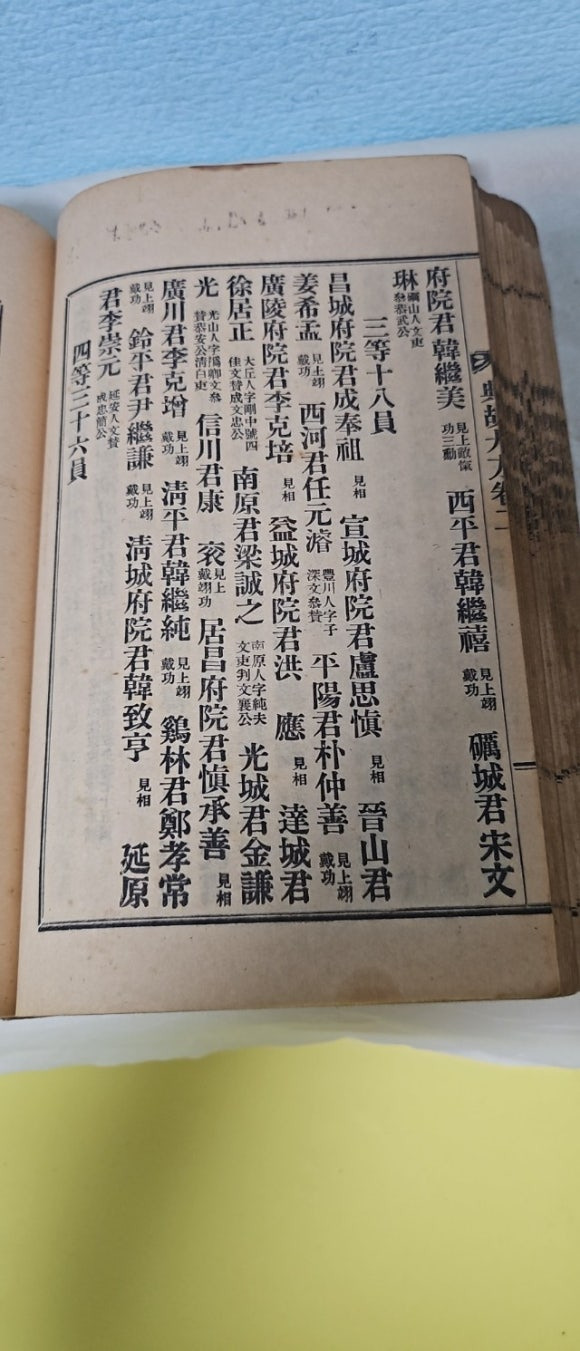 典故大方卷二
府院君韓繼美 見上敵愾功三勳 西平君韓繼禧 見上翊戴功 礪城君宋文
琳 礪山人文吏參恭武公
三等十八員
昌城府院君成奉祖 見相 宣城府院君盧思愼 見相 晉山君
姜希孟 見上翊戴功 西河君任元濬 豐川人字子深文參贊 平陽君朴仲善 見上翊戴功
廣陵府院君李克培 見相 益城府院君洪應 見相 達城君
徐居正 大丘人字剛中號四佳文贊成文忠公 南原君梁誠之 南原人字純夫文吏判文襄公 光城君金謙
光 光山人字撝卿文參贊恭安公淸白吏 信川君康袞 見上翊戴功 居昌府院君愼承善 見相
廣川君李克增 見上翊戴功 淸平君韓繼純 見上翊戴功 鷄林君鄭孝常
見上翊戴功 鈴平君尹繼謙 見上翊戴功 淸城府院君韓致亨 見相 延原
君李崇元 延安人文贊成忠簡公
四等三十六員